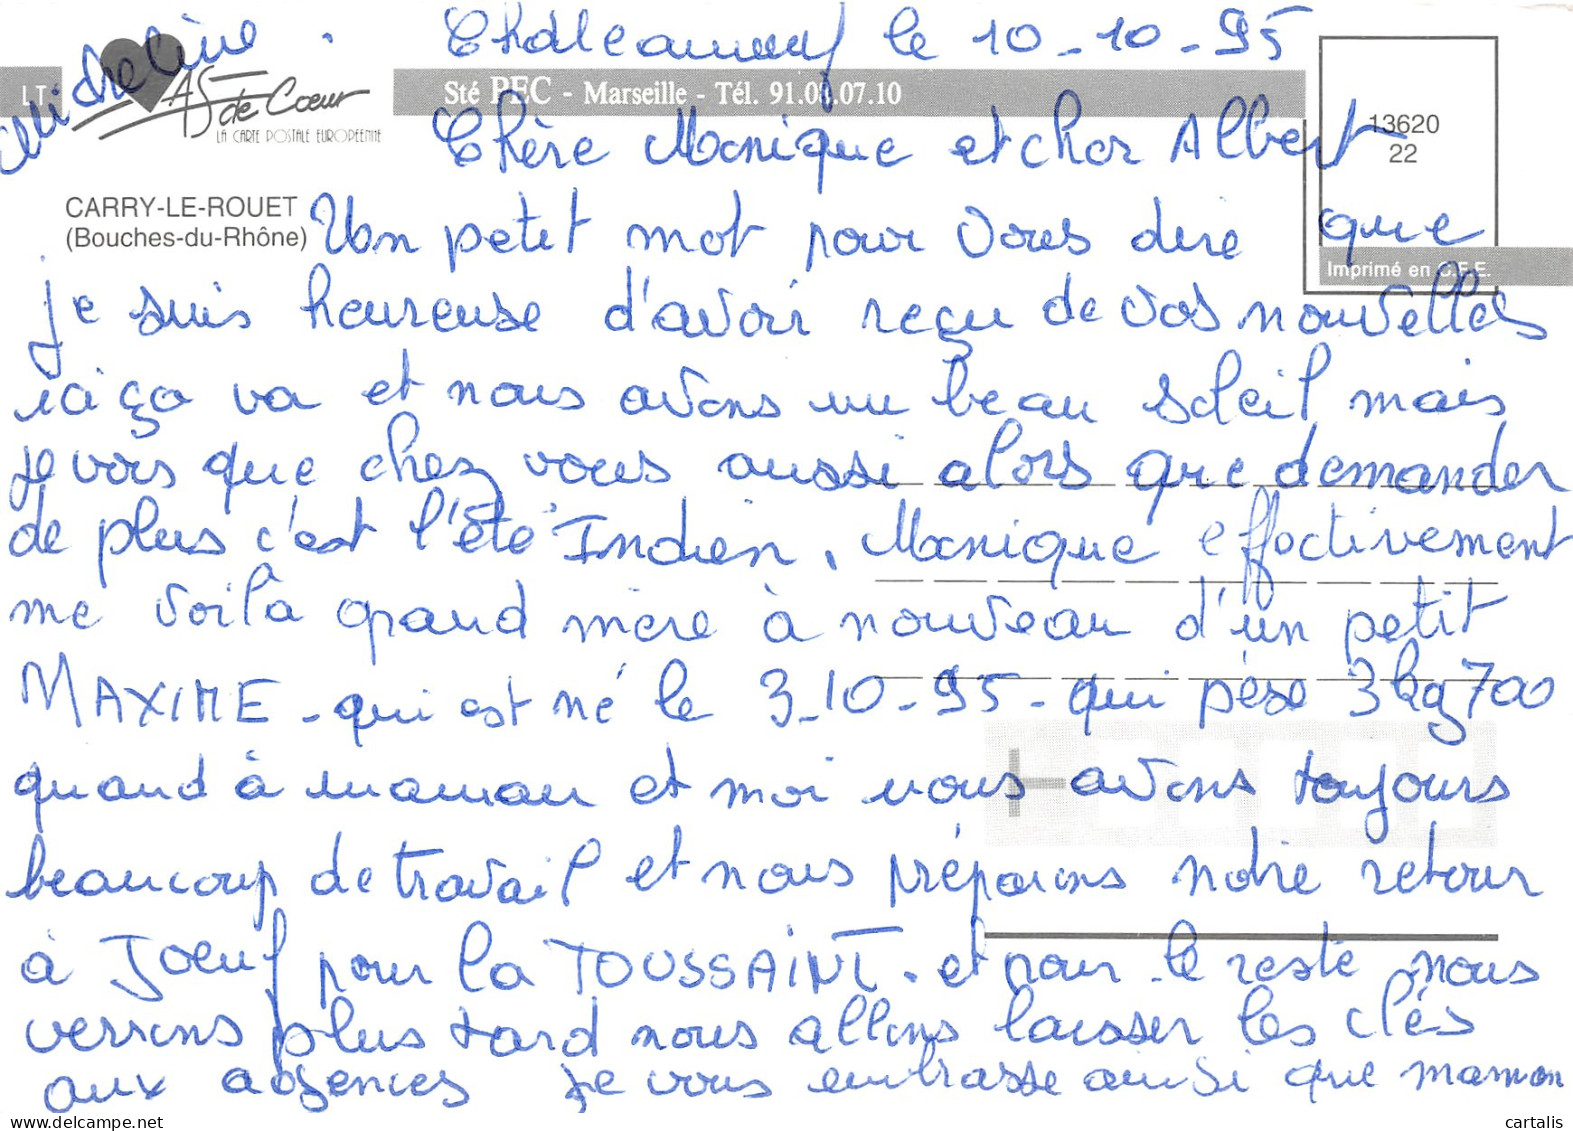 Châteauneuf le 10-10-95
LT
As de Coeur
LA CARTE POSTALE EUROPEENNE
Sté PEC - Marseille - Tél. 91.0 .07.10
13620
22
Chère Monique et cher Albert
CARRY-LE-ROUET
(Bouches-du-Rhône)
Un petit mot pour vous dire que
Imprimé en C.E.E.
je suis heureuse d'avoir reçu de vos nouvelles
ici ça va et nous avons un beau soleil mais
je vois que chez vous aussi alors que demander
de plus c'est l'été Indien. Monique effectivement
me voilà grand mère à nouveau d'un petit
MAXIME - qui est né le 3-10-95 - qui pèse 3kg700
quand à maman et moi nous avons toujours
beaucoup de travail et nous préparons notre retour
à Joeuf pour la TOUSSAINT. et pour le reste nous
verrons plus tard nous allons laisser les clés
aux agences je vous embrasse ainsi que maman
Micheline.
cartalis